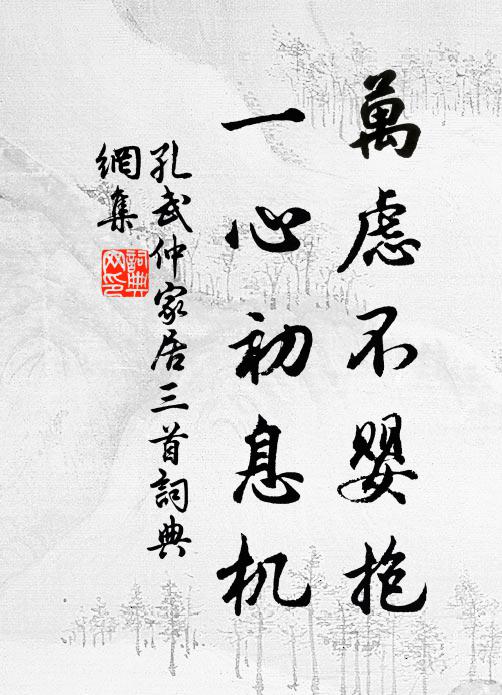 萬慮不嬰抱
一心初息机
孔武仲家居三首詞典
網集
詞典網印